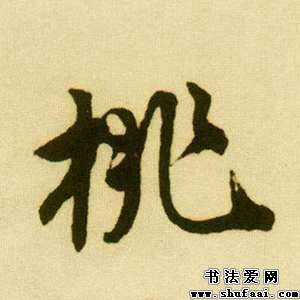 桃
书法爱网
www.shufaai.com